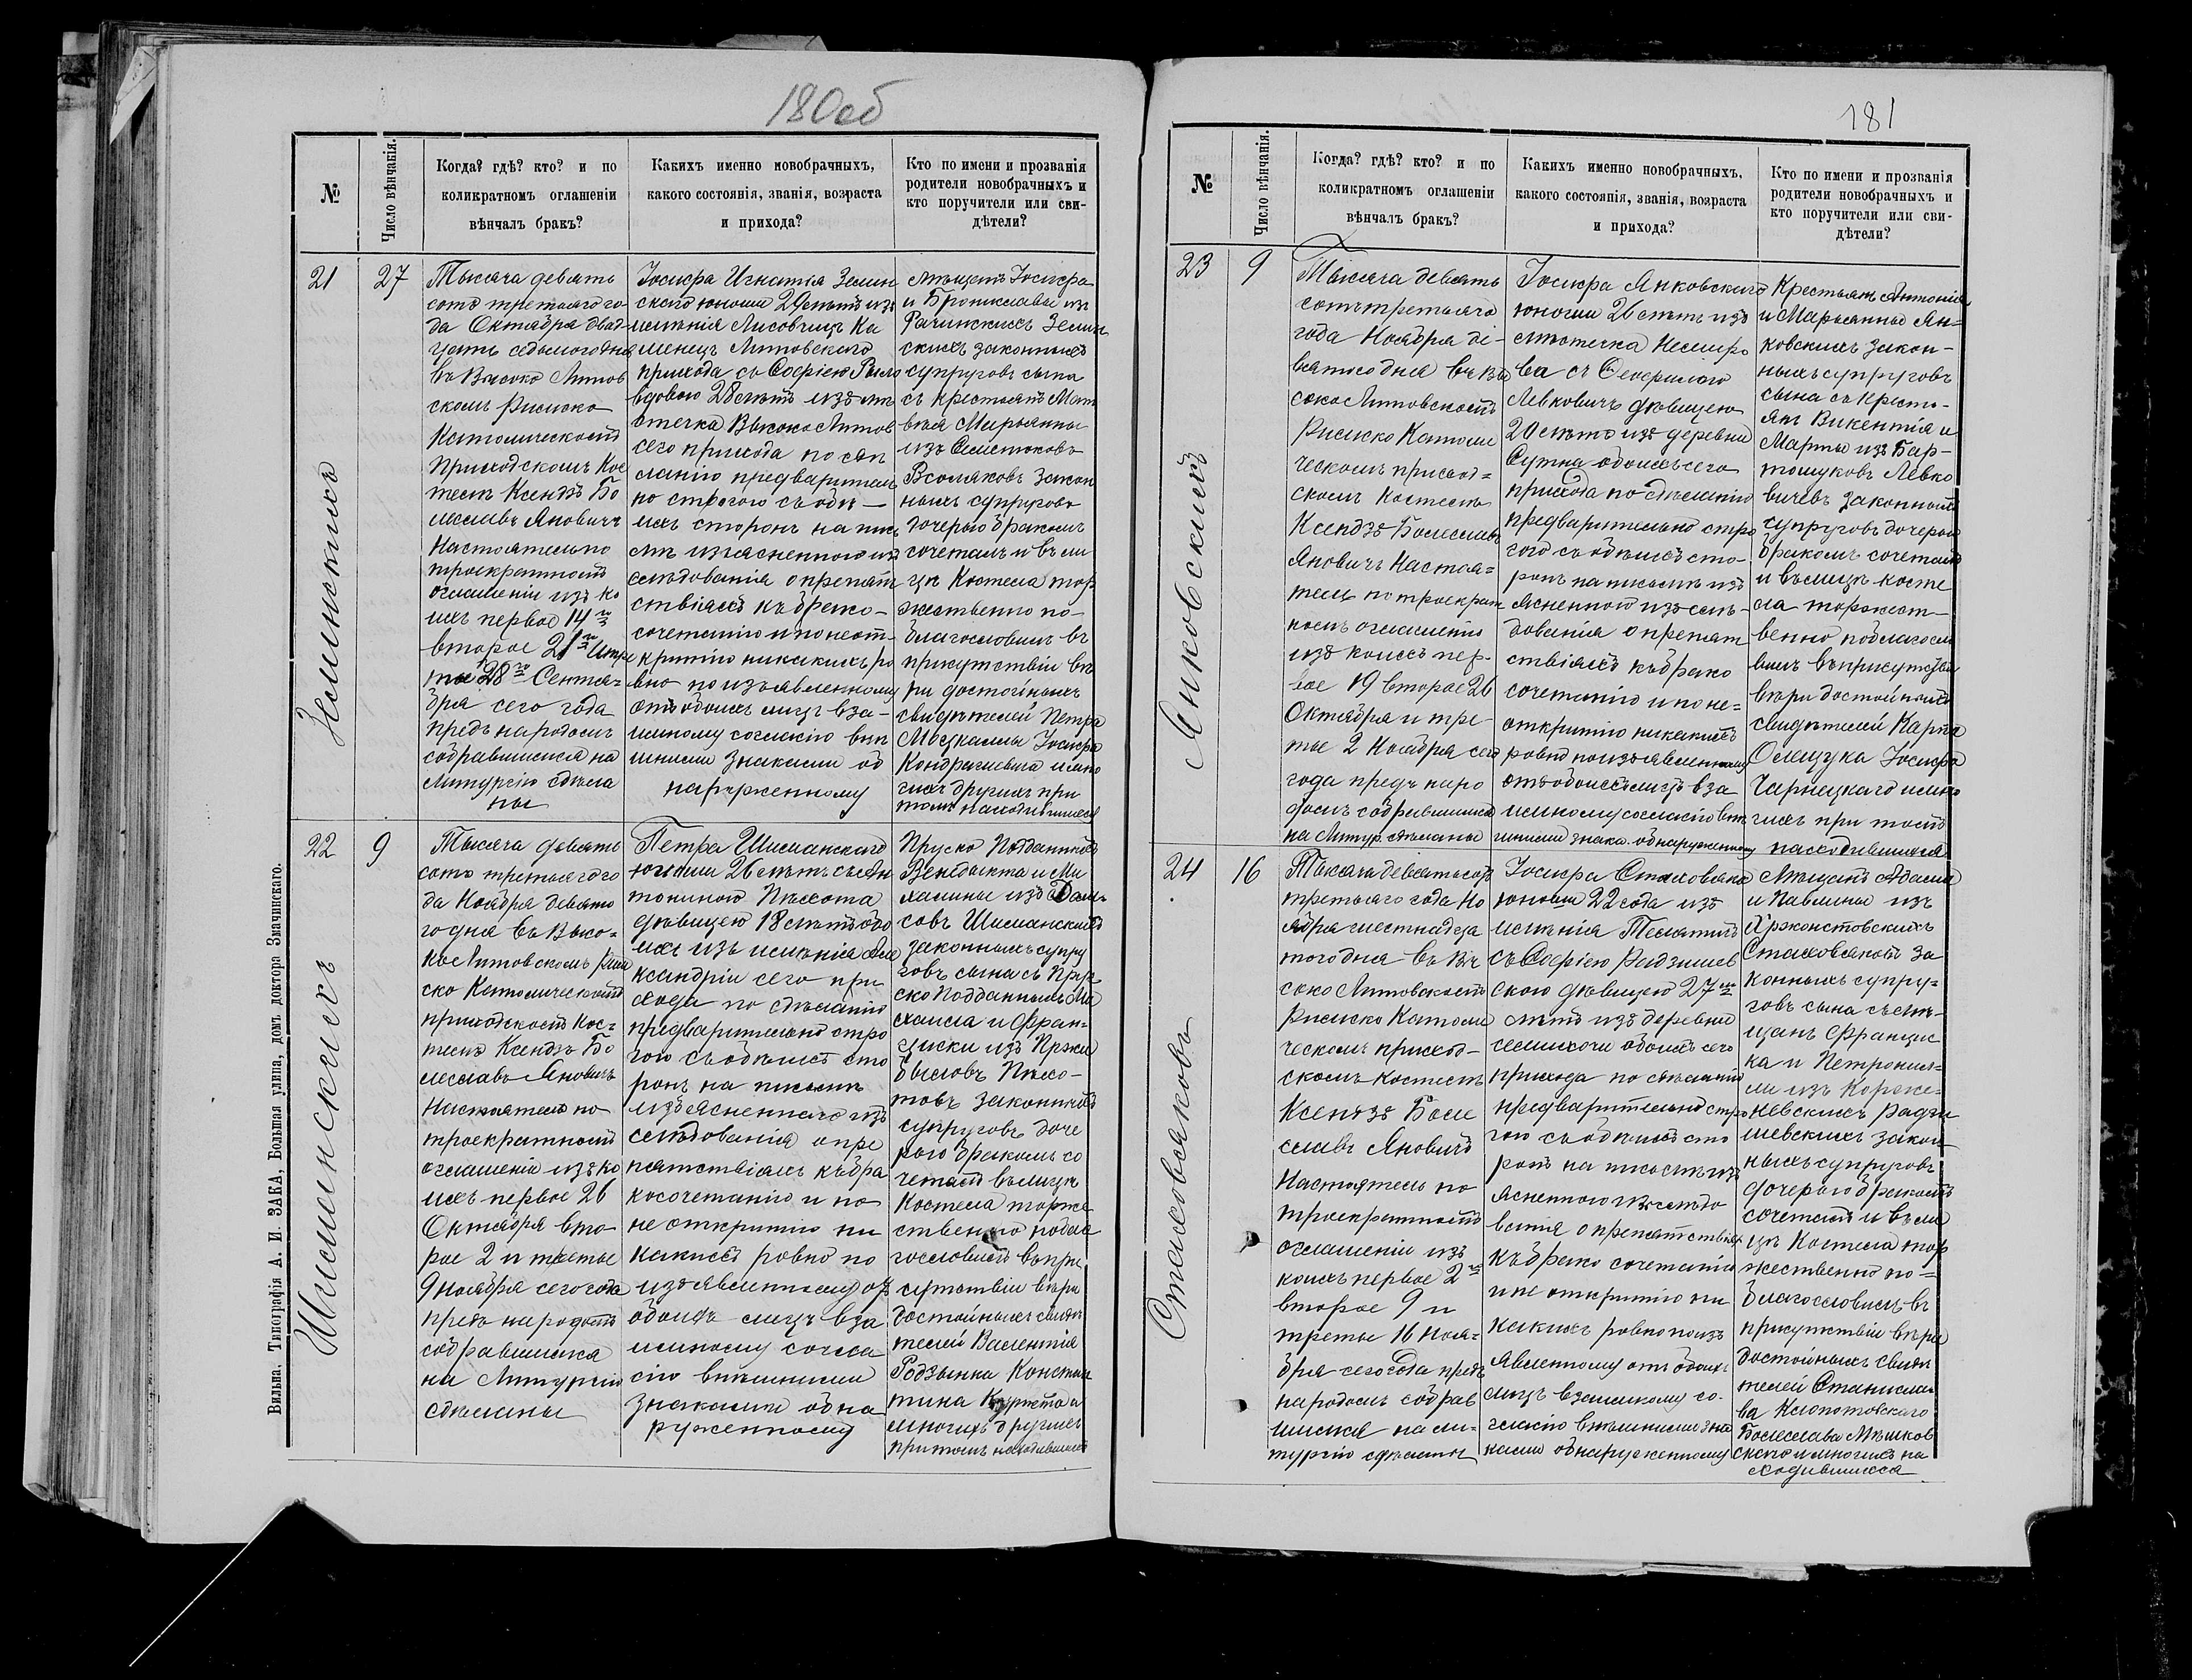 180об
№
Число вѣнчанія.
Когда? гдѣ? кто? и по
коликратномъ оглашеніи
вѣнчалъ бракъ?
Какихъ именно новобрачныхъ,
какого состоянія, званія, возраста
и прихода?
Кто по имени и прозванія
родители новобрачныхъ и
кто поручители или сви-
дѣтели?
21
27
Тысяча девять
сотъ третьяго го-
да Октября двад-
цать седьмого дня
въ Высоко Литов
скомъ Римско
Католическомъ
Приходскомъ Кос
телѣ Ксендзъ Бо
леславъ Яновичъ
Настоятель по
троекратномъ
оглашеніи изъ ко
ихъ первое 14го
второе 21го и тре
тье 28го Сентя-
бря сего года
предъ народомъ
собравшимся на
Литургію сдѣла
ны
Іосифа Игнатія Земин
скаго юноши 29 лѣтъ изъ
имѣнія Лисовчицъ Ка
менецъ Литовскаго
прихода съ Софіею
вдовою 28 лѣтъ изъ мѣ
стечка Высоко Литов
сего прихода по сдѣ
ланію предваритель
но строгого съ обѣ—
ихъ сторонъ на пись
мѣ изъясненного из
слѣдованія о препят
ствіяхъ къ брако-
сочетанію и по неот-
крытію никакихъ ро
вно по изъявленному
отъ обоихъ лицъ вза-
имному согласію внѣ
шними знаками об
наруженному
мѣщанъ Іосифа
и Брониславы изъ
Рачинскихъ Земин
скихъ законныхъ
супруговъ сына
съ крестьянъ Мат
вѣя Марьянны
изъ
законн
ныхъ супруговъ
дочерью бракомъ
сочеталъ и въ ли
цѣ Костела тор
жественно по-
благословилъ въ
присутствіи вѣ
ри достойныхъ
свидѣтелей Петра
Іосифа
Кондрашевича и мно
гихъ другихъ при
томъ находившихся
22
9
Тысяча девять
сотъ третьяго го
да Ноября девято
го дня въ Высо-
ко Литовскомъ Рим
ско Католическомъ
приходскомъ Кос-
телѣ Ксендзъ Бо
леславъ Яновичъ
Настоятель по
троекратномъ
оглашеніи изъ ко
ихъ первое 26
Октября вто-
рое 2 и третье
9 Ноября сего года
предъ народомъ
собравшимся
на Литургію
сдѣланы
Петра Шиманскаго
юноши 26 лѣтъ съ Ан
тониною Пѣхота
дѣвицею 18 лѣтъ обо
ихъ изъ имѣнія Але
ксандріи сего при
хода по сдѣланію
предварительно стро
гого съ обѣихъ сто
ронъ на письмѣ
изъясненного из
слѣдованія о пре
пятствіяхъ къ бра
косочетанію и по
не открытію ни
какихъ ровно по
изъявленному от
обоихъ лицъ вза
имному согла
сію внѣшними
знаками обна
руженному
Пруско Подданныхъ
Венедыкта и Ми
халины изъ
Шиманскихъ
законныхъ супру
говъ сына съ Прус
ско Подданныхъ Ми
хаила и Фран-
циски изъ Пржи
быловъ Пѣхо-
товъ законныхъ
супруговъ доче
рью бракомъ со
четалъ въ лицѣ
Костела торже
ственно побла
гословилъ въ при
сутствіи вѣри
достойныхъ свидѣ
телей Валентія
Родзынка Констан
тина и
многихъ другихъ
притомъ находившихся
181
№
Число вѣнчанія.
Когда? гдѣ? кто? и по
коликратномъ оглашеніи
вѣнчалъ бракъ?
Какихъ именно новобрачныхъ,
какого состоянія, званія, возраста
и прихода?
Кто по имени и прозванія
родители новобрачныхъ и
кто поручители или сви-
дѣтели?
23
9
Янковскихъ
Тысяча девять
сотъ третьяго
года Ноября де-
вятого дня въ Вы
соко Литовскомъ
Римско Католи
ческомъ приход-
скомъ Костелѣ
Ксендзъ Болеславъ
Яновичъ Настоя-
тель по троекрат
номъ оглашеніи
изъ коихъ пер-
вое 19 второе 26
Октября и тре-
тье 2 Ноября сего
года предъ наро
домъ собравшимся
на Литур. сдѣланы
Іосифа Янковскаго
юноши 26 лѣтъ изъ
мѣстечка Немиро
ва съ
Левковичъ дѣвицею
20 лѣтъ изъ деревни
обоихъ сего
прихода по сдѣланію
предварительно стро
гого съ обѣихъ сто-
ронъ на письмѣ из
ясненного изслѣ-
дованія о препят
ствіяхъ къ брако
сочетанію и по не-
открытію никакихъ
ровно по изъявленному
отъ обоихъ лицъ вза
имному согласію внѣ
шними знака. обнаруженному
Крестьянъ Антонія
и Марьянны Ян-
ковскихъ закон-
ныхъ супруговъ
сына съ кресть-
янъ Викентія и
Марты изъ Бар-
тошуковъ Левко
вичевъ законныхъ
супруговъ дочерью
бракомъ сочеталъ
и въ лицѣ косте
ла торжест-
венно поблагосло
вилъ въ присутствіи
вѣри достойныхъ
свидѣтелей Карпа
Олещука Іосифа
Чарнецкаго и мно
гихъ при томъ
находившихся
24
16
Стаховяковъ
Тысяча девятьсотъ
третьяго года Но
ября шестнадца
того дня въ Вы
соко Литовскомъ
Римско Католи
ческомъ приход-
скомъ Костелѣ
Ксендзъ Боле
славъ Яновичъ
Настоятель по
троекратномъ
оглашеніи изъ
коихъ первое 2го
второе 9 и
третье 16 Ноя-
бря сего года предъ
народомъ собрав
шимся на Ли-
тургію сдѣланы
Іосифа Стаховяка
юноши 22 года изъ
имѣнія
съ Софіею Радзишев
скою дѣвицею 27ми
лѣтъ изъ деревни
обоихъ сего
прихода по сдѣланію
предварительно стро
гого съ обѣихъ сто
ронъ на письмѣ из
ясненного изслѣдо
ванія о препятствіях
къ брако сочетанію
и не открытію ни
какихъ ровно по изъ
явленному отъ обоих
лицъ взаимному со-
гласію внѣшними зна
ками обнаруженному
Мѣщанъ Адама
и Павлины изъ
Стаховяковъ за
конныхъ супру-
говъ сына съ мѣ-
щанъ Францис
ка и Петронел-
ли изъ
Радзи
шевскихъ закон
ныхъ супруговъ
дочерью бракомъ
сочеталъ и въ ли
цѣ Костела тор
жественно по-
благословилъ въ
присутствіи вѣри
достойныхъ свидѣ
телей Станисла-
ва Клопотовскаго
Болеслава Мѣшков
скаго и многихъ на
ходившихся
Шиманскихъ
Земинскихъ
Вильна. Типографія А. И. ЗАКА, Большая улица, домъ доктора Змачинскаго.